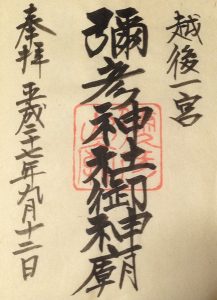 越後一宮
彌彦神社御神廟
奉拝 平成二十七年九月十二日